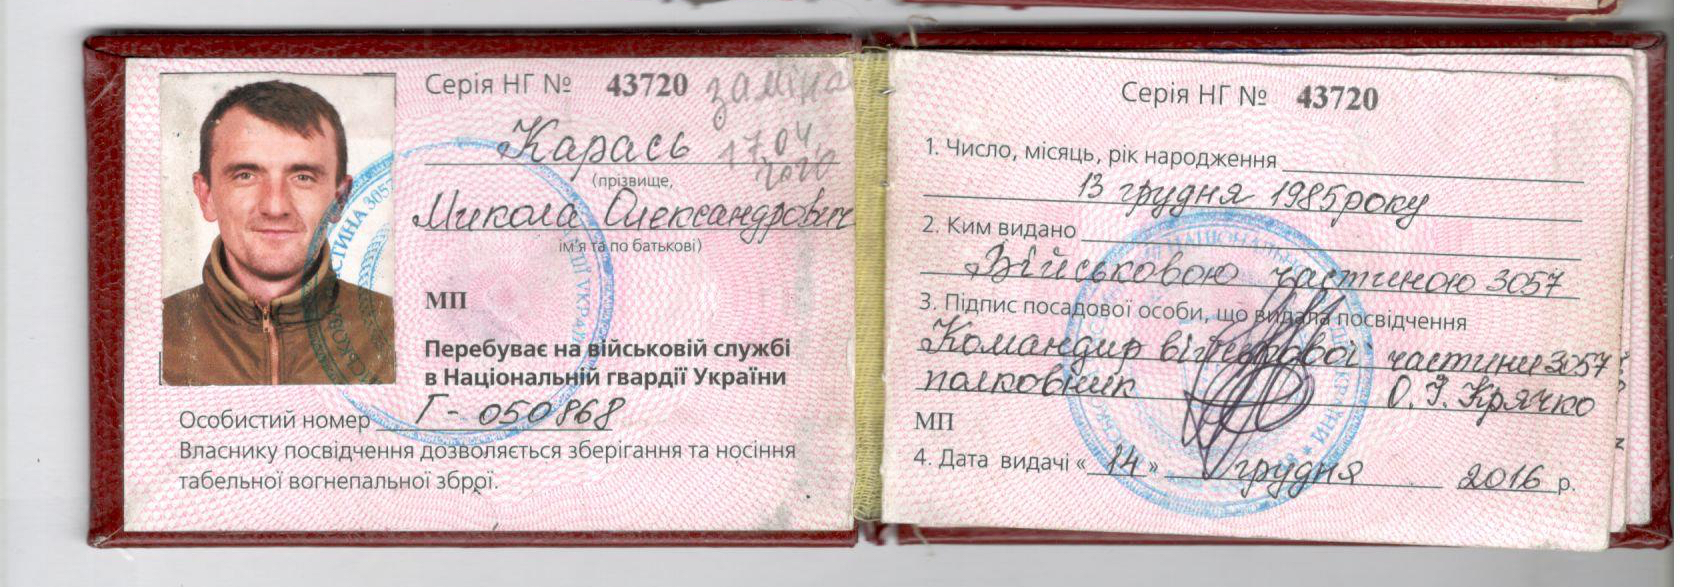 Серія НГ № 43720 заміна
Карась 17.04.
2020
(прізвище,
Микола Олександрович
ім'я та по батькові)
МП
Перебуває на військовій службі
в Національній гвардії України
Особистий номер Г-050868
Власнику посвідчення дозволяється зберігання та носіння
табельної вогнепальної зброї.
Серія НГ № 43720
1. Число, місяць, рік народження
13 грудня 1985року
2. Ким видано
Військовою частиною 3057
3. Підпис посадової особи, що видала посвідчення
Командир військової частини 3057
полковник О. Крячко
МП
4. Дата видачі « 14 » грудня 2016 р.